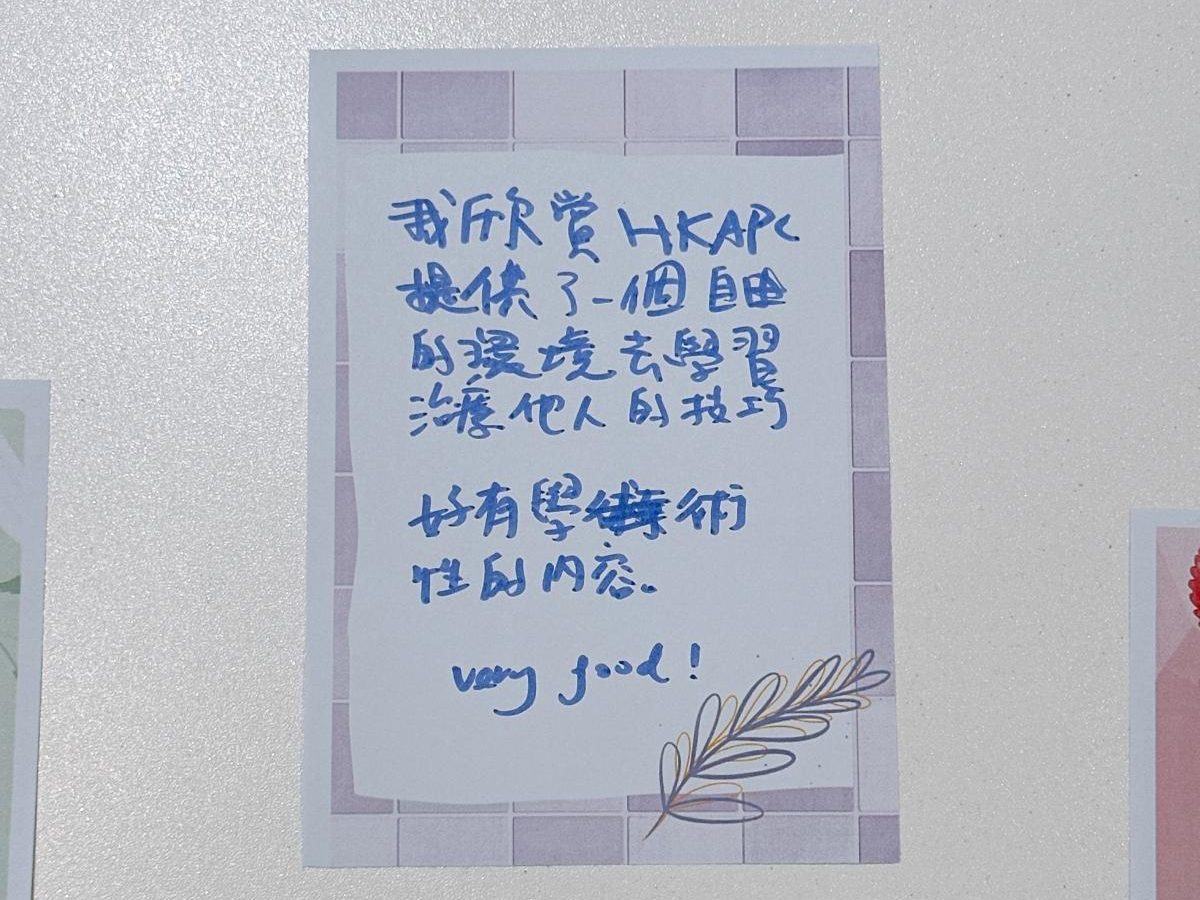 我欣賞HKAPC
提供了一個自由
的環境去學習
治療他人的技巧
好有學術
性的內容。
very good!